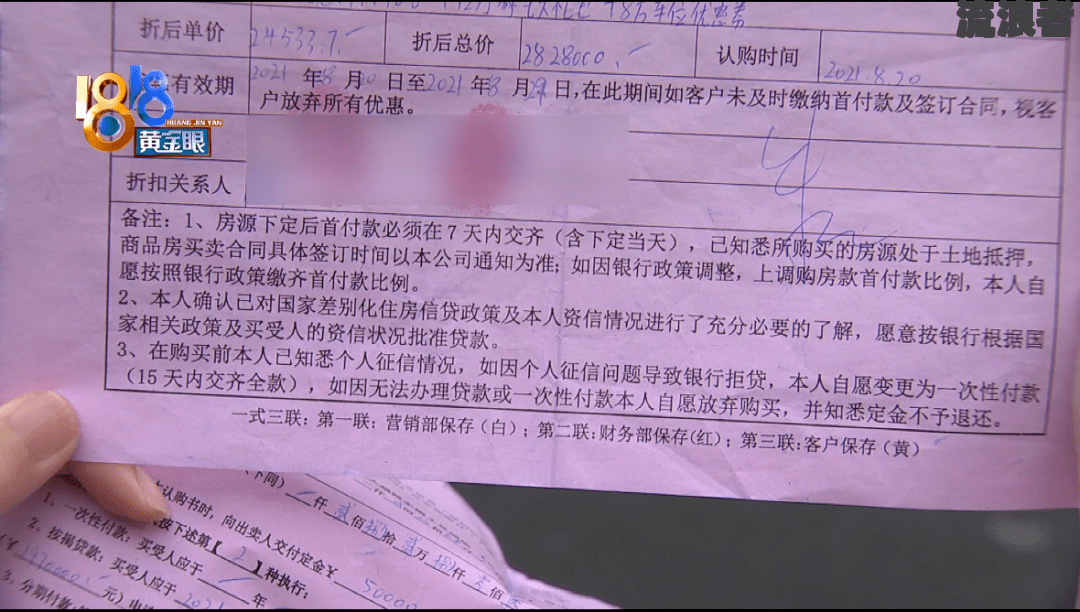 流浪者
折后单价 24533.7.- 折后总价 2828000.- 认购时间 2021.8.20
有效期 2021年8月20日至2021年8月29日,在此期间如客户未及时缴纳首付款及签订合同,视客
户放弃所有优惠。
1818
HUANG JIN YAN
黄金眼
折扣关系人
备注:1、房源下定后首付款必须在7天内交齐(含下定当天),已知悉所购买的房源处于土地抵押,
商品房买卖合同具体签订时间以本公司通知为准;如因银行政策调整,上调购房款首付款比例,本人自
愿按照银行政策缴齐首付款比例。
2、本人确认已对国家差别化住房信贷政策及本人资信情况进行了充分必要的了解,愿意按银行根据国
家相关政策及买受人的资信状况批准贷款。
3、在购买前本人已知悉个人征信情况,如因个人征信问题导致银行拒贷,本人自愿变更为一次性付款
(15天内交齐全款),如因无法办理贷款或一次性付款本人自愿放弃购买,并知悉定金不予退还。
一式三联:第一联:营销部保存(白);第二联:财务部保存(红);第三联:客户保存(黄)
下同) 仟贰佰捌拾贰万捌仟 佰
认购书时,向出卖人交付定金¥ 50000
按下述第【2】种执行:
1、一次性付款:买受人应于 年
2、按揭贷款:买受人应于 2021
(¥1970000.- 元)
3、分期付款